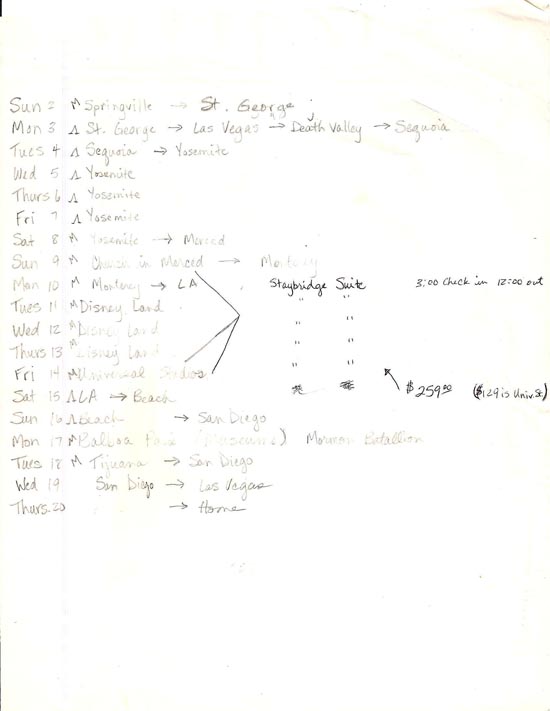 Sun 2 M Springville → St. George
Mon 3 Λ St. George → Las Vegas → Death Valley → Sequoia
Tues 4 Λ Sequoia → Yosemite
Wed 5 Λ Yosemite
Thurs 6 Λ Yosemite
Fri 7 Λ Yosemite
Sat 8 M Yosemite → Merced
Sun 9 M Church in Merced → Monterey
Mon 10 M Monterey → LA Staybridge Suite 3:00 Check in 12:00 out
Tues 11 M Disney Land " "
Wed 12 M Disney Land " "
Thurs 13 M Disney Land " "
Fri 14 M Universal Studios " "
Sat 15 Λ LA → Beach $259.00 ($129 is Univ. St)
Sun 16 Λ Beach → San Diego
Mon 17 M Balboa Park (Museums) Mormon Batallion
Tues 18 M Tijuana → San Diego
Wed 19 San Diego → Las Vegas
Thurs. 20 → Home